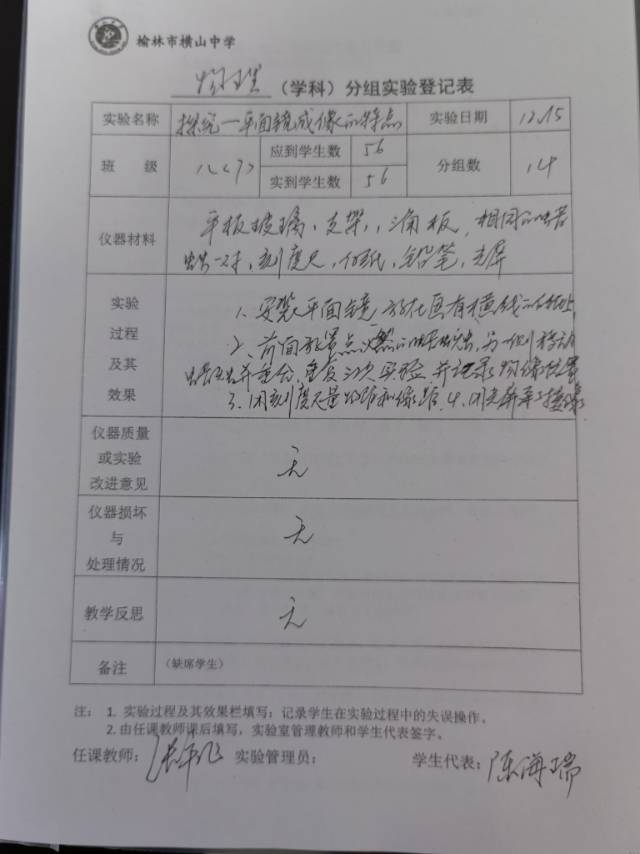 榆林市横山中学
物理（学科）分组实验登记表
实验名称 探究平面镜成像的特点 实验日期 12.15
班 级 八(7) 应到学生数 56 分组数 14
实到学生数 56
仪器材料 平板玻璃、支架、三角板、相同的蜡
烛一对、刻度尺、白纸、铅笔、光屏
实验
过程
及其
效果
1、安装平面镜 放在画有横线的白纸上
2、前面放置点燃的蜡烛，另一侧移动
蜡烛并重合，重复三次实验，并记录物像位置
3、用刻度尺量物距和像距 4、用光屏承接像
仪器质量
或实验
改进意见
无
仪器损坏
与
处理情况
无
教学反思 无
备注 （缺席学生）
注： 1. 实验过程及其效果栏填写：记录学生在实验过程中的失误操作。
2. 由任课教师课后填写，实验室管理教师和学生代表签字。
任课教师： 实验管理员： 学生代表：陈海瑞